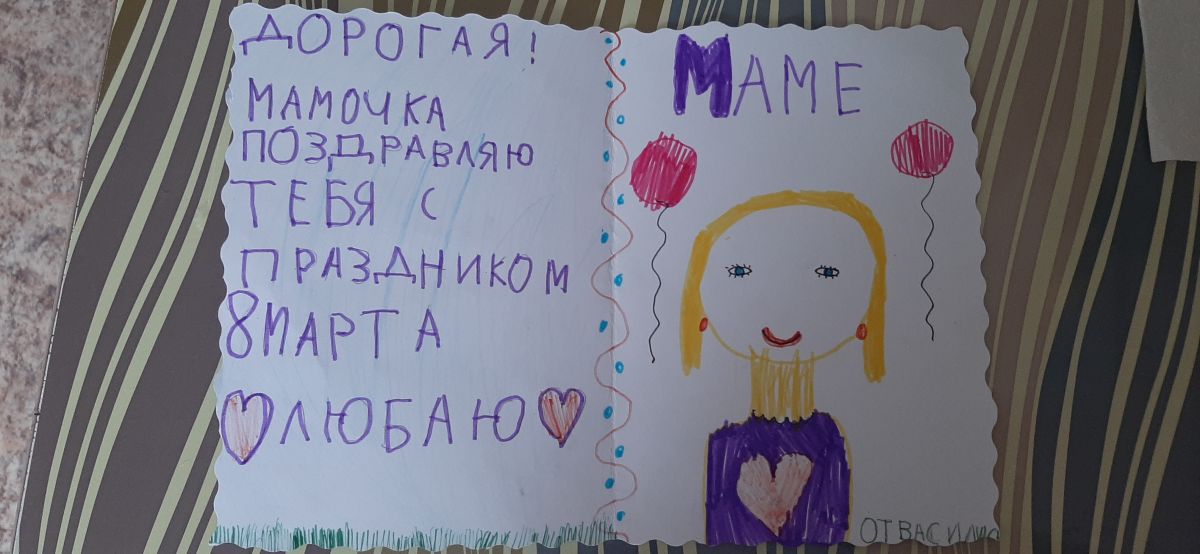 ДОРОГАЯ!
МАМОЧКА
ПОЗДРАВЛЯЮ
ТЕБЯ С
ПРАЗДНИКОМ
8 МАРТА
ЛЮБАЮ
МАМЕ